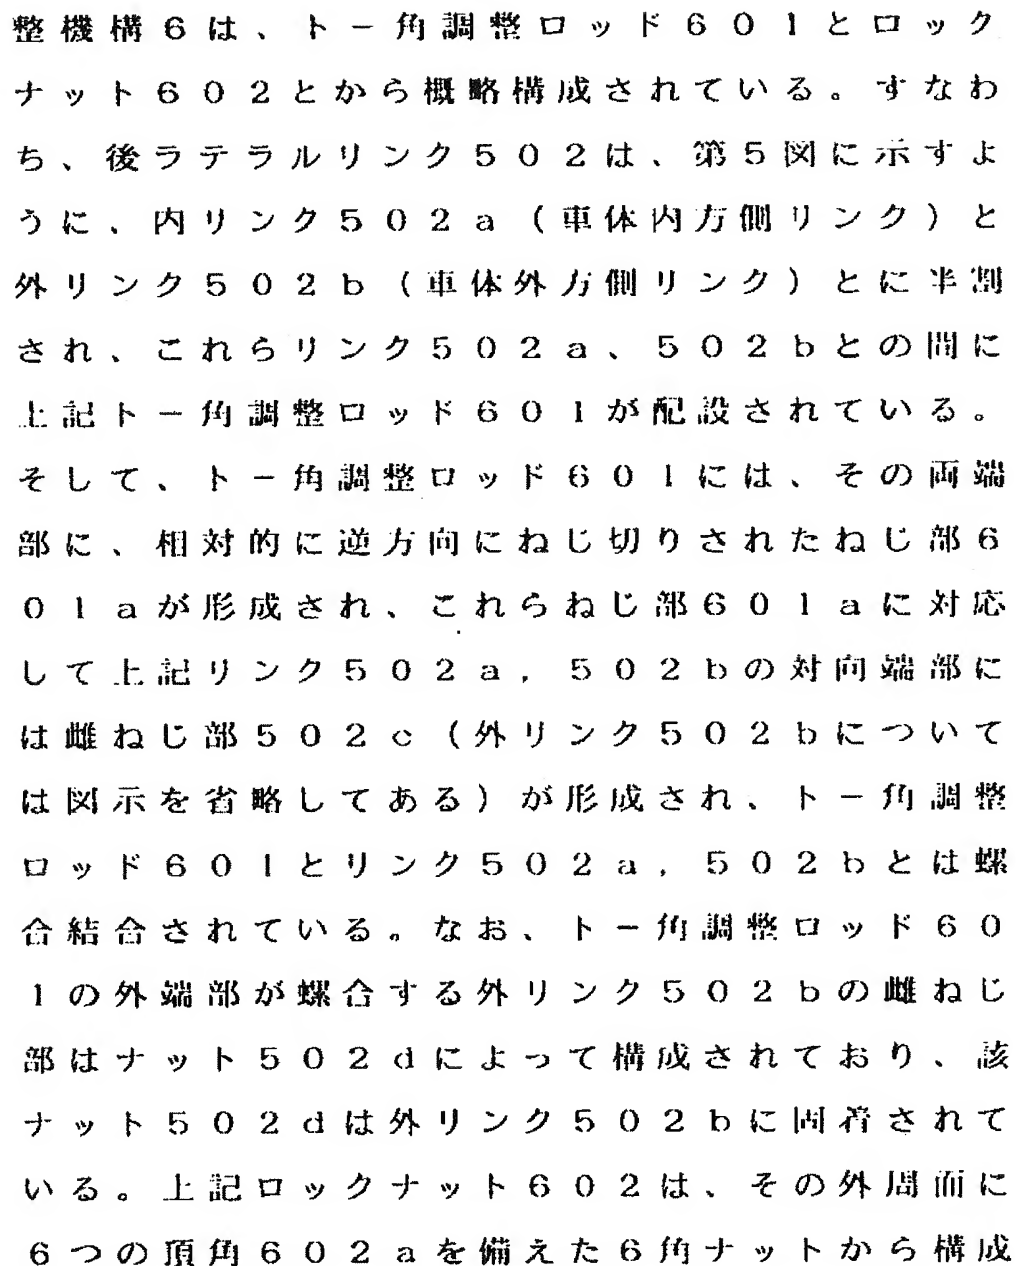 整機構６は、トー角調整ロッド６０１とロック
ナット６０２とから概略構成されている。すなわ
ち、後ラテラルリンク５０２は、第５図に示すよ
うに、内リンク５０２ａ（車体内方側リンク）と
外リンク５０２ｂ（車体外方側リンク）とに半割
され、これらリンク５０２ａ、５０２ｂとの間に
上記トー角調整ロッド６０１が配設されている。
そして、トー角調整ロッド６０１には、その両端
部に、相対的に逆方向にねじ切りされたねじ部６
０１ａが形成され、これらねじ部６０１ａに対応
して上記リンク５０２ａ，５０２ｂの対向端部に
は雌ねじ部５０２ｃ（外リンク５０２ｂについて
は図示を省略してある）が形成され、トー角調整
ロッド６０１とリンク５０２ａ，５０２ｂとは螺
合結合されている。なお、トー角調整ロッド６０
１の外端部が螺合する外リンク５０２ｂの雌ねじ
部はナット５０２ｄによって構成されており、該
ナット５０２ｄは外リンク５０２ｂに固着されて
いる。上記ロックナット６０２は、その外周面に
６つの頂角６０２ａを備えた６角ナットから構成